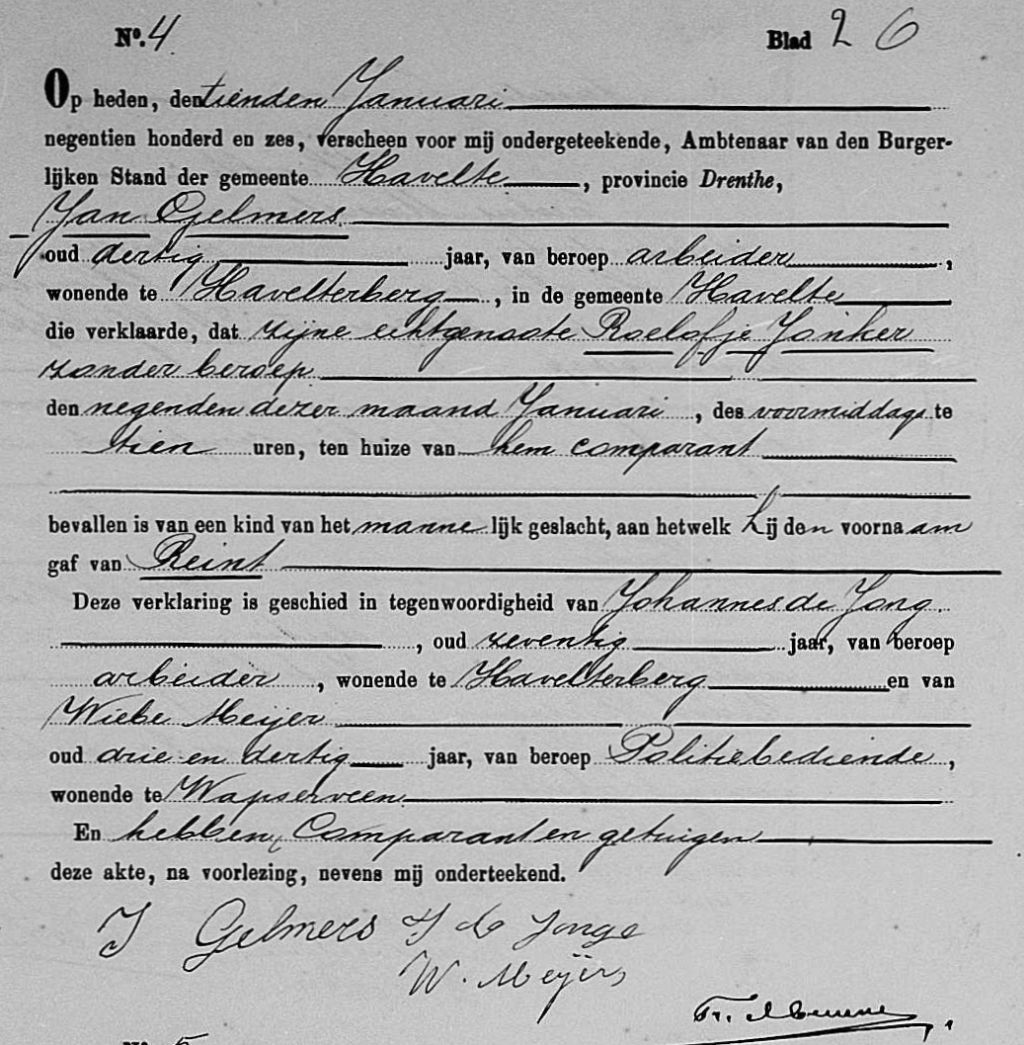 No. 4 Blad 2 6
Op heden, den tienden Januari
negentien honderd en zes, verscheen voor mij ondergeteekende, Ambtenaar van den Burger-
lijken Stand der gemeente Havelte, provincie Drenthe,
Jan Gelmers
oud dertig jaar, van beroep arbeider,
wonende te Havelterberg, in de gemeente Havelte
die verklaarde, dat zijne echtgenoote Roelofje Jonker
zonder beroep
den negenden dezer maand Januari, des voormiddags te
tien uren, ten huize van hem comparant
bevallen is van een kind van het mannelijk geslacht, aan hetwelk hij den voornaam
gaf van Reint
Deze verklaring is geschied in tegenwoordigheid van Johannes de Jong
, oud zeventig jaar, van beroep
arbeider, wonende te Havelterberg en van
Wiebe Meijer
oud drie en dertig jaar, van beroep Politiebediende,
wonende te Wapserveen
En hebben, Comparant en getuigen
deze akte, na voorlezing, nevens mij onderteekend.
J Gelmers J de Jonge
W. Meijer